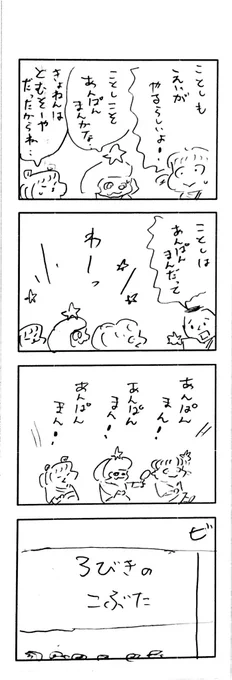 ことしも
えいが
やるらしいよ!
ことしこそ
あんぱん
まんかな
きょねんは
とむそーや
だったからね…
ことしは
あんぱん
まんだって
わーっ
あんぱん
まん!
あんぱん
まん!
あんぱん
まん!
ビ
3びきの
こぶた